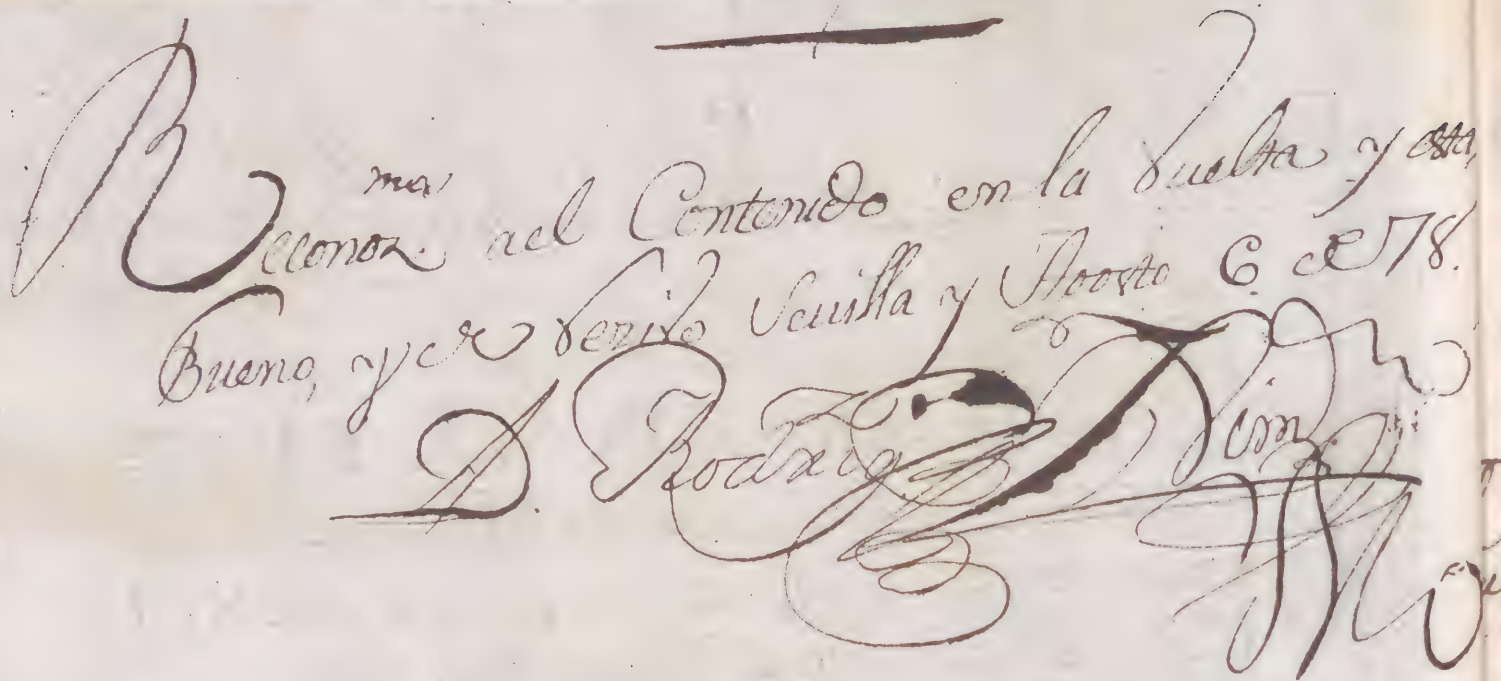 Reconoz. al Contenido en la Vuelta y esta,
Bueno, y de servi.o Sevilla y Agosto 6. de 78.
D. Rodrig.